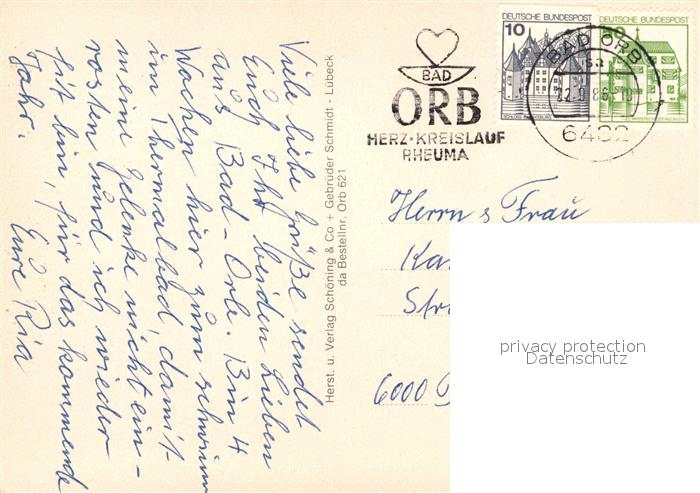 Viele liebe Grüße sendet
Euch Ihr beiden Lieben
aus Bad-Orb. Bin 4
Wochen hier zum schwim
im Thermalbad, damit
meine Gelenke nicht ein-
rosten und ich wieder
fit bin, für das kommende
Jahr.
Eure Ria
Herst. u. Verlag Schöning & Co + Gebrüder Schmidt - Lübeck
da Bestellnr. Orb 621
BAD
ORB
HERZ·KREISLAUF
RHEUMA
DEUTSCHE BUNDESPOST
10
DEUTSCHE BUNDESPOST
50
BAD ORB
6482
Herrn & Frau
Ka
Str
6000
privacy protection
Datenschutz